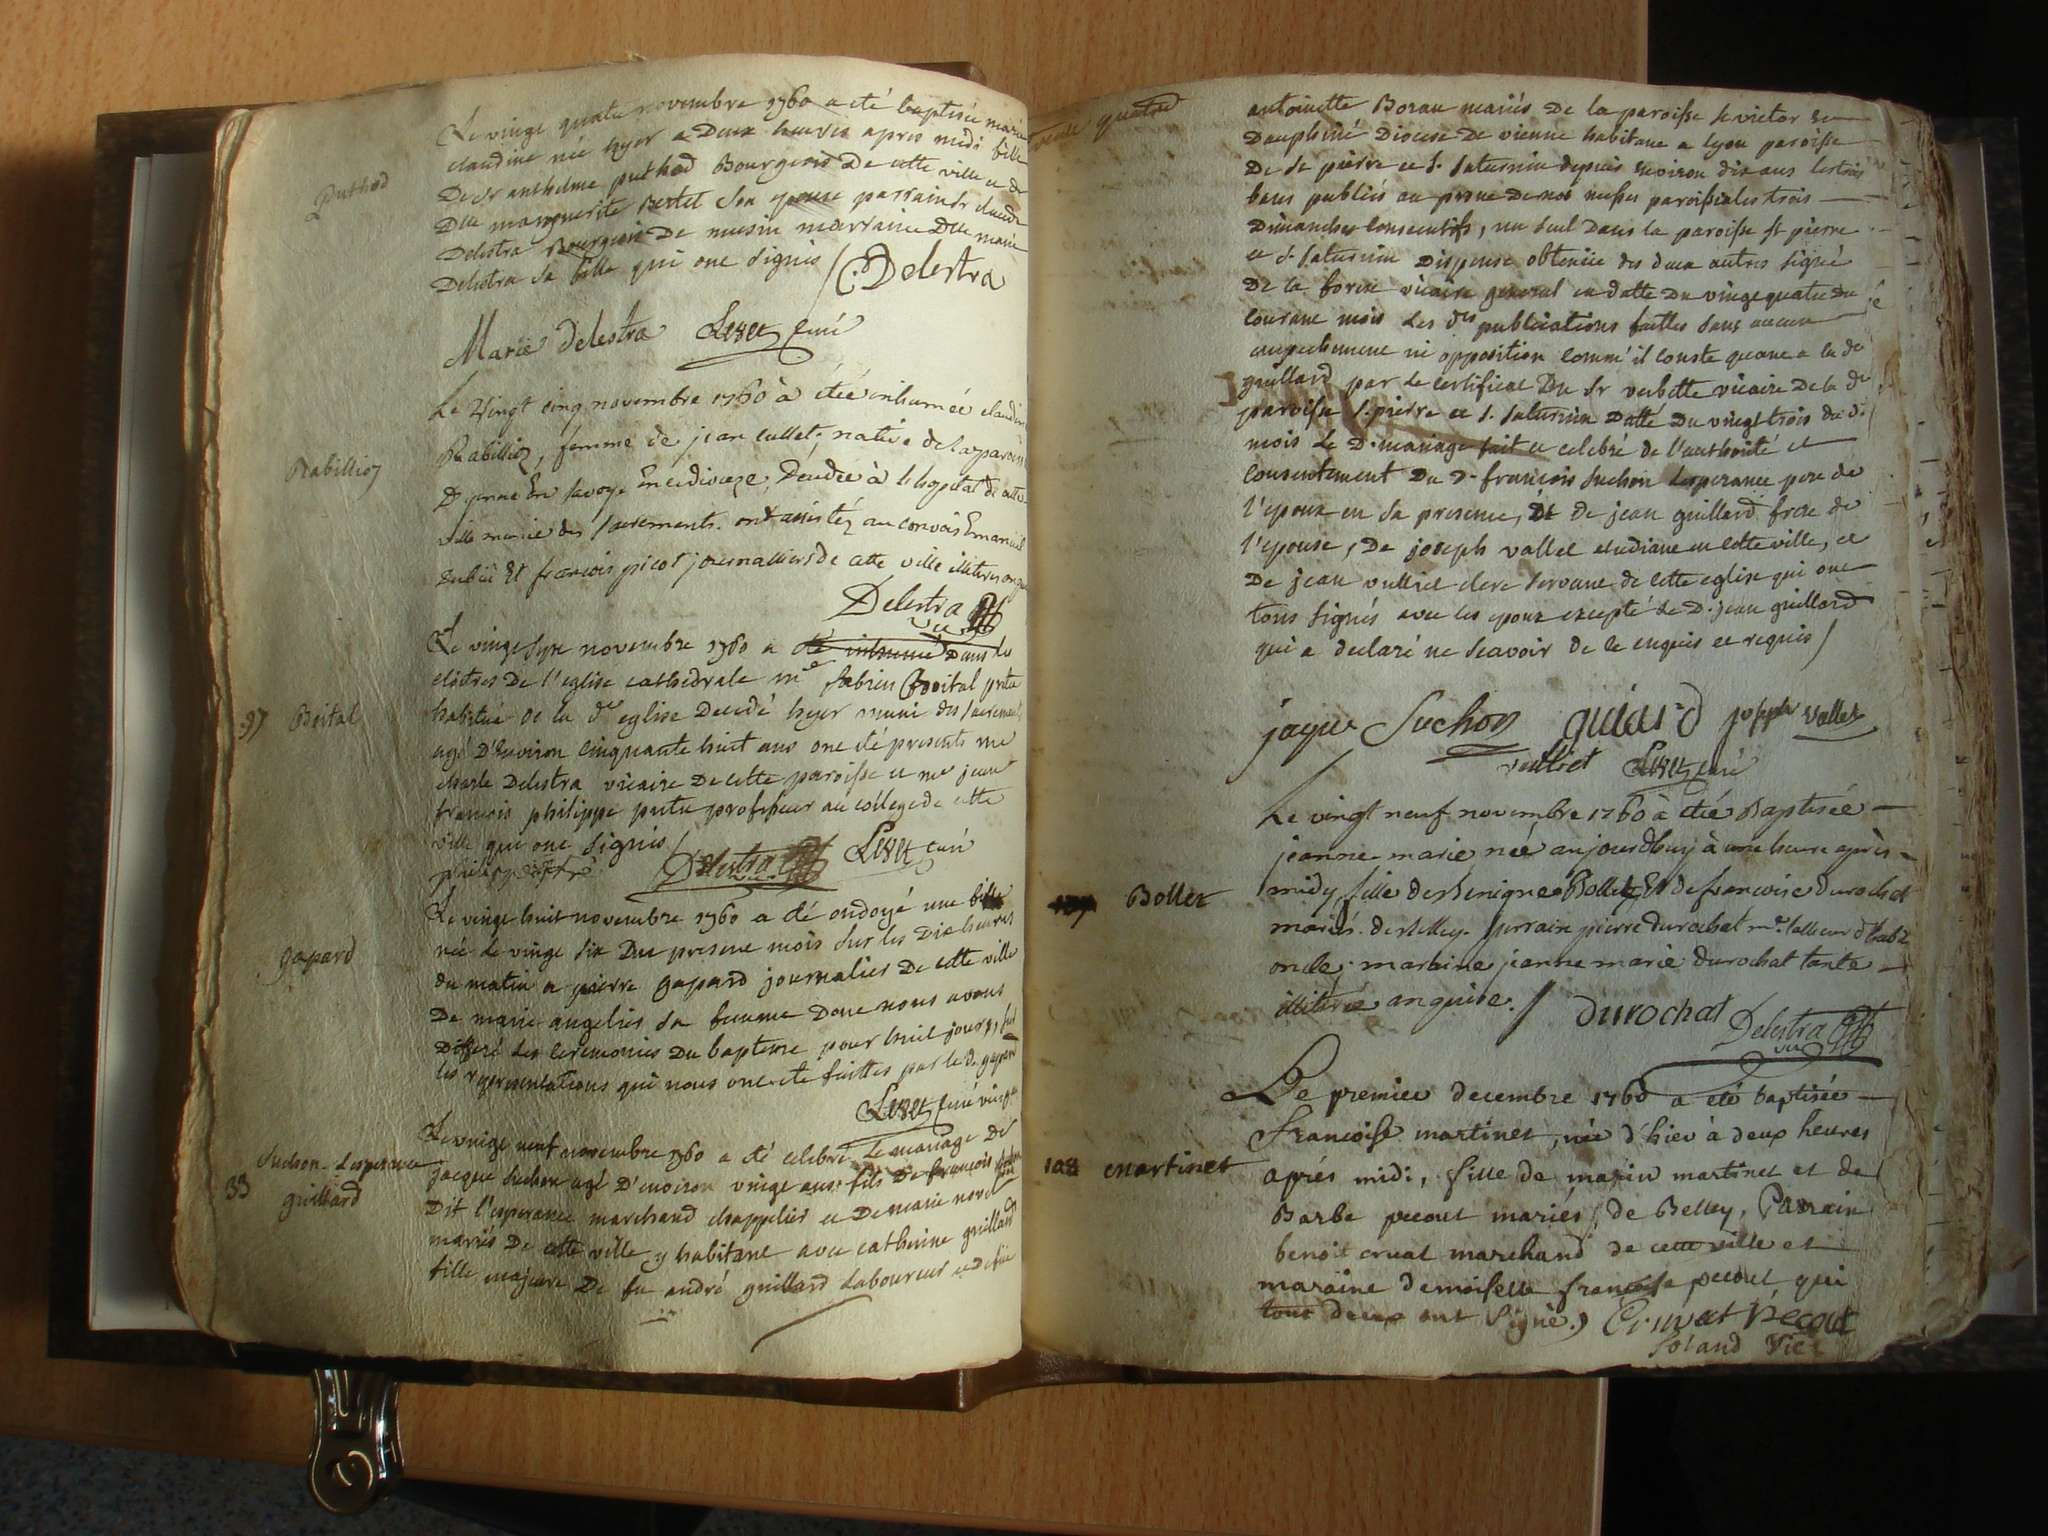 Le vingt quatre novembre 1760 a eté baptisée marie
claudine née hyer a Deux heures apres midi fille
Puthod
De Sr anthelme puthod Bourgeois De cette ville et de
Dlle marguerite Bertet son epouse parrain Sr claude
Delestra Bourgeois De marraine Dlle marie
Delestra sa fille qui ont signés / C: Delestra
Marie Delestra curé
Le Vingt cinq novembre 1760 à étée inhumée claudine
Rabillioz
Rabillioz, femme de jean cullet, native de la paroisse
D'yenne En savoye En ce diocèze, Décédée à l'hopital de cette
ville munie des sacrements. ont assistéz au convois Emanuel
dubié Et françois picot journalliers de cette ville illiteres enquis
Delestra
vic
Le vingt sept novembre 1760 a eté inhumé Dans les
cloitres De l'eglise cathedrale me fabien Boital pretre
97 Boital
habitué de la de eglise Decedé hyer muni des sacrements
agé D'environ cinquante huit ans ont eté presents me
charle Delestra vicaire De cette paroisse et me jean
françois philippe pretre professeur au college de cette
ville qui ont signés /
philippe ptre Delestra curé
Le vingt huit novembre 1760 a eté ondoyé une fille
née le vingt six Du present mois sur les Dix heures
gapard
du matin a pierre gapard journalier De cette ville
De marie angelier sa femme Dont nous avons
Differé les ceremonies Du bapteme pour huit jours, sur
les representations qui nous ont eté faittes par le d. gapard
curé
Le vingt neuf novembre 1760 a eté celebré Le mariage De
Suchon-Lesperance
33 guillard
jacque suchon agé D'environ vingt ans fils De françois suchon
Dit l'esperance marchand chappelier et De marie novel
mariés De cette ville y habitant avec catherine guillard
fille majeure De fu andré guillard Laboureur et de fue
trente quatre
antoinette Boran mariés De la paroisse St victor en
Dauphiné Diocese De vienne habitant a lyon paroisse
De St pierre et St saturnin depuis environ dix ans les trois
bans publiés au prone De nos messes paroissiales trois
Dimanches consecutifs, un seul Dans la paroisse St pierre
et St saturnin Dispense obtenüe des deux autres signé
De la forest vicaire general en datte Du vingt quatre du
courant mois Les des publications faittes sans aucun
empechement ni opposition comm'il conste quant a la de
guillard par le certificat Du Sr verbette vicaire De la de
paroisse St pierre et St saturnin Datté Du vingt trois du d.
mois Le D. mariage fait et celebré de l'authorité et
consentement Du d. françois suchon Lesperance pere de
l'epoux en sa presence, et De jean guillard frere de
l'epouse, De joseph vallet etudiant en cette ville, et
De jean vulliet clerc servant de cette eglise qui ont
tous signés avec les epoux excepté le D. jean guillard
qui a declaré ne scavoir de le enquis et requis /
jaque Suchon guiard joseph vallet
vulliet curé
Le vingt neuf novembre 1760 à étée Baptisée
jeanne marie née aujourdhuy à une heure après
107 Bollet
midy, fille de Benigne Bollet Et de francoise durochat
mariés de Belley. parrain pierre durochat me tailleur d'habz
oncle; maraine jeanne marie durochat tante
illiterée enquise. / Durochat Delestra
vic
Le premier decembre 1760 a eté baptisée
francoise martinet, née d'hier à deux heures
108 martinet
aprés midi, fille de marin martinet et de
Barbe pecout mariés, de Belley, Parrain
benoit cruat marchand de cette ville et
maraine demoiselle francoise pecout qui
tous deux ont signé.) Cruat Pecout
Soland Vic